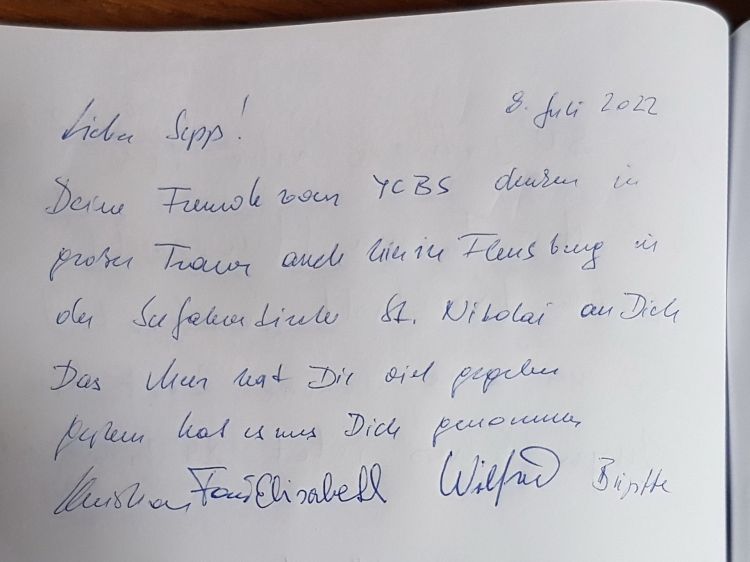 8. Juli 2022
Lieber Sepp!
Deine Freunde vom YCBS denken in
großer Trauer auch hier in Flensburg in
der Seefahrerkirche St. Nikolai an Dich
Das Meer hat Dir viel gegeben
gestern hat es uns Dich genommen
Elisabeth Wilfried Birgitta